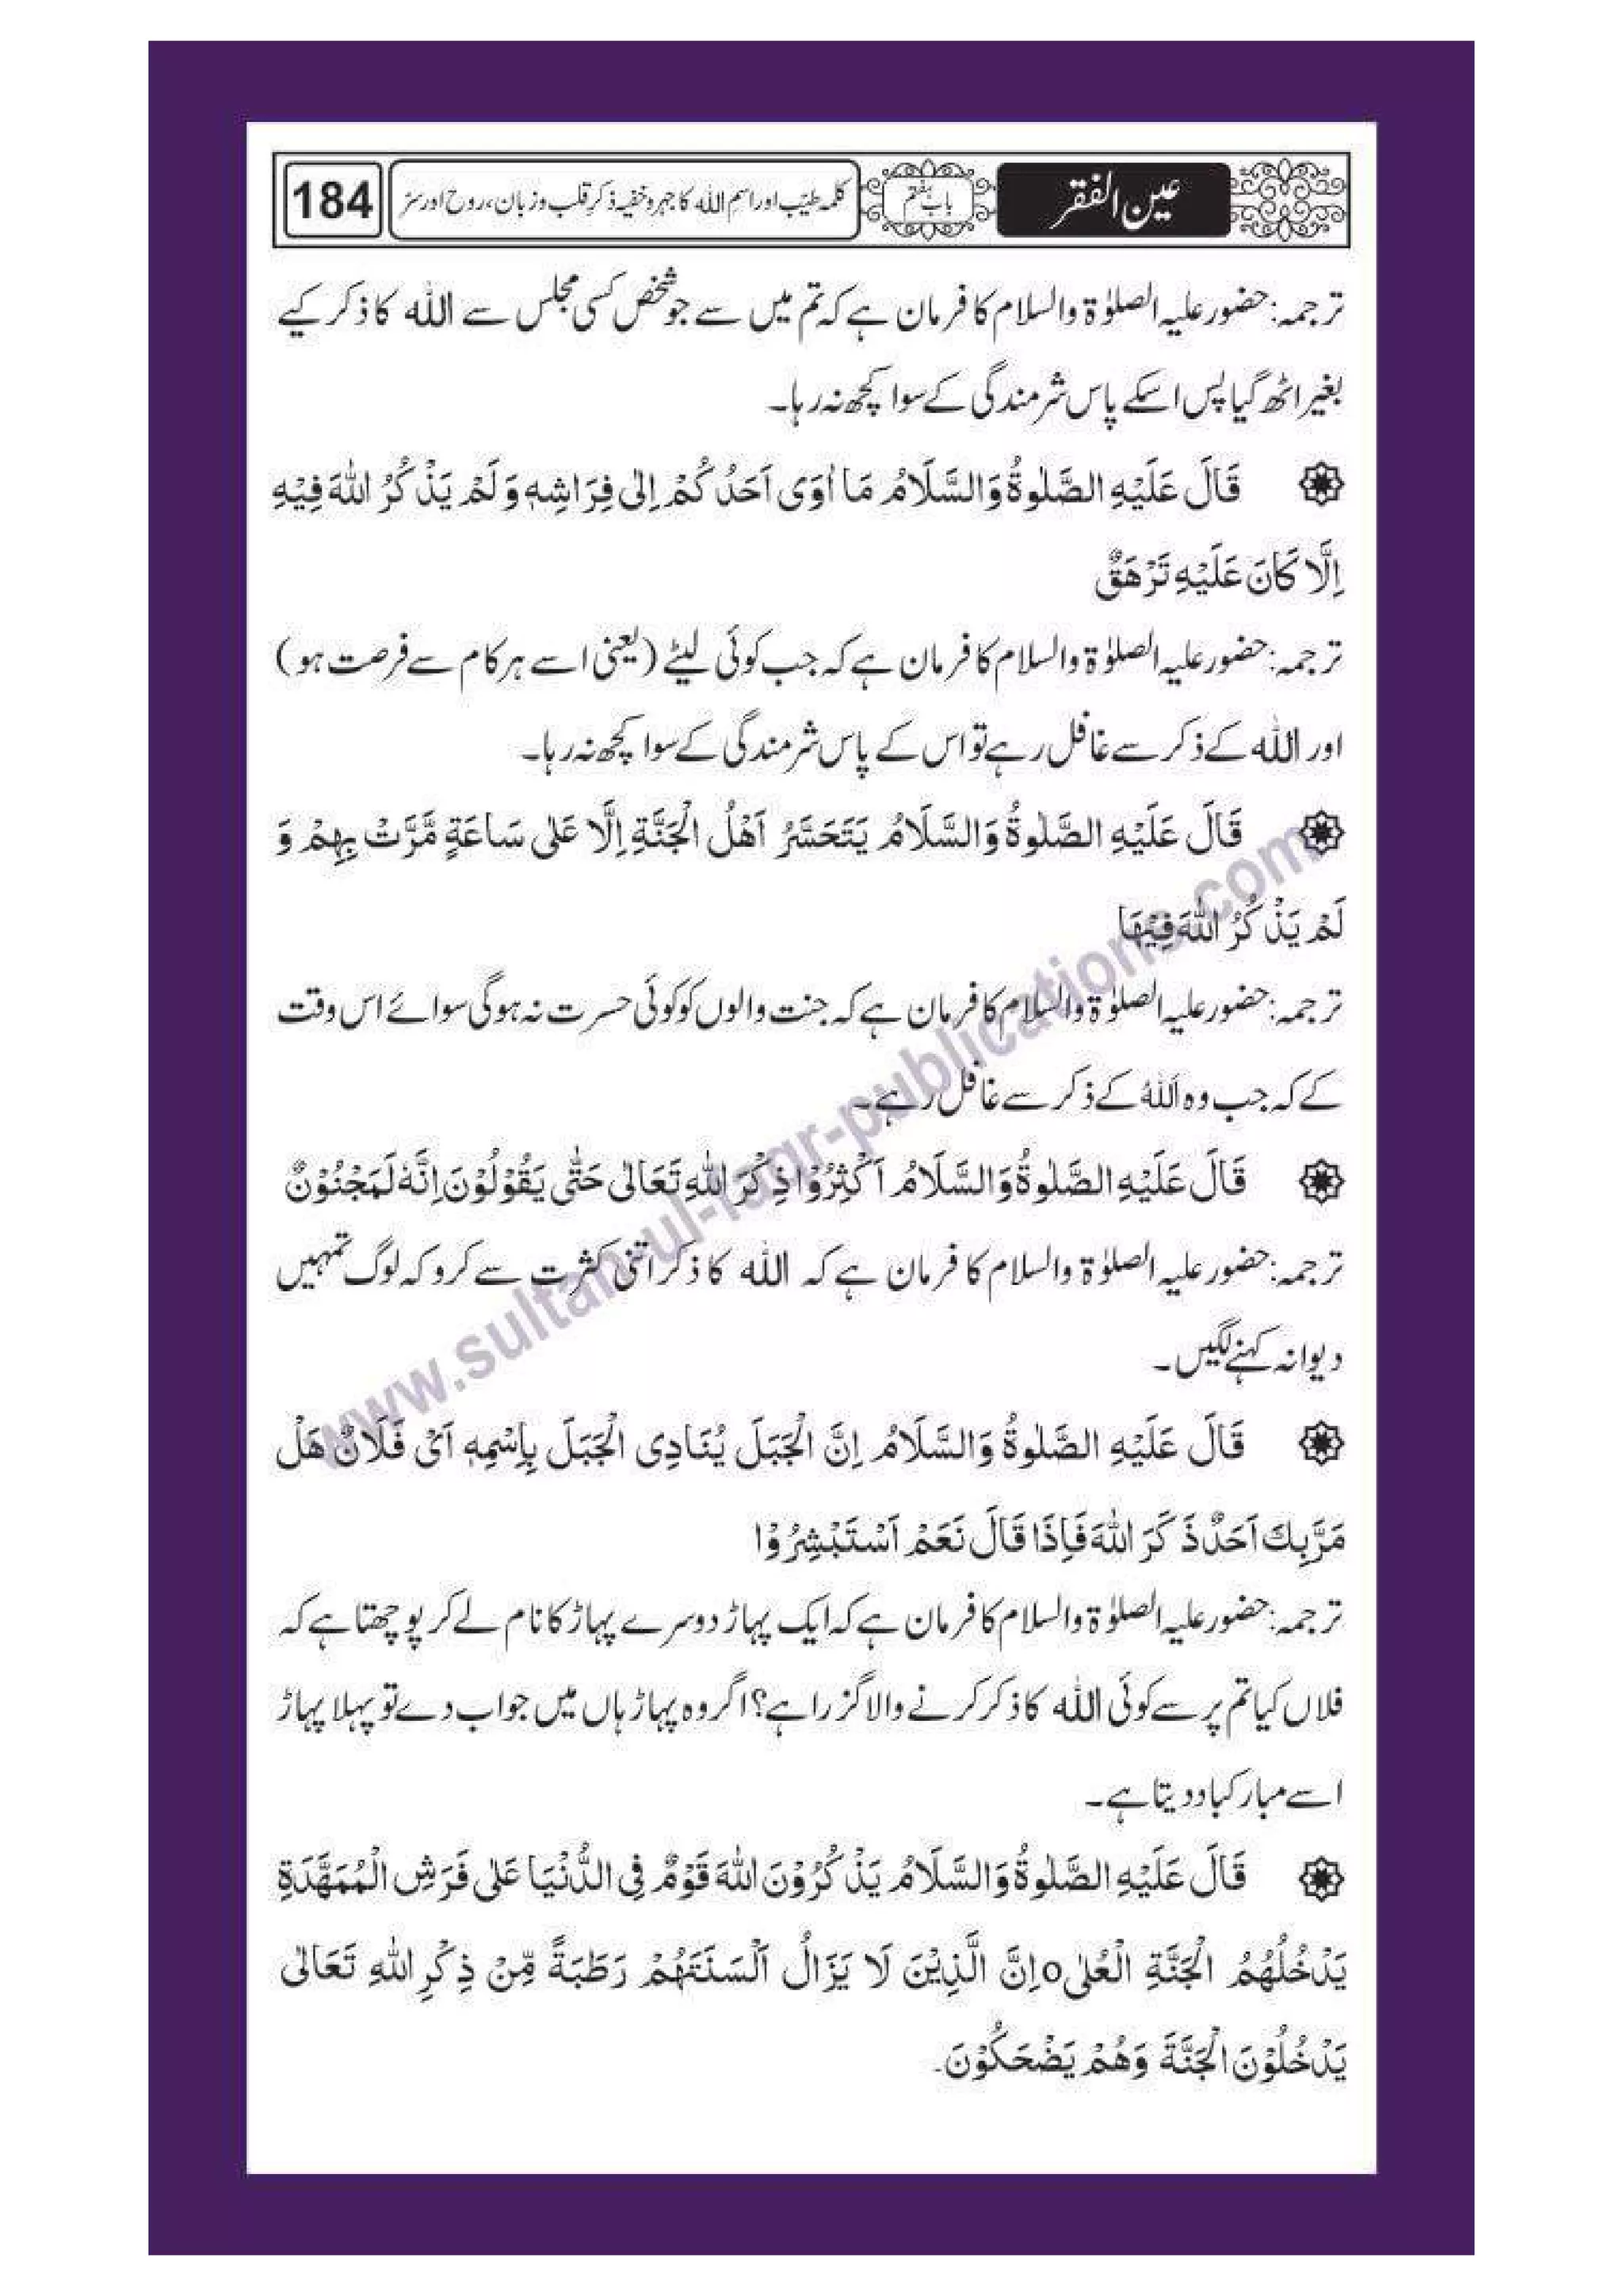 عین الفقر
باب ہفتم
کلمہ طیّب اور اسمِ اللہ کا جہر و خفیہ ذکرِ قلب و زبان، روح اور سرّ
184
ترجمہ: حضور علیہ الصلوٰۃ والسلام کا فرمان ہے کہ تم میں سے جو شخص کسی مجلس سے اللہ کا ذکر کیے
بغیر اٹھ گیا پس اسکے پاس شرمندگی کے سوا کچھ نہ رہا۔
قَالَ عَلَیْہِ الصَّلٰوۃُ وَالسَّلَامُ مَا اٰوٰی اَحَدُ کُمْ اِلٰی فِرَاشِہٖ وَلَمْ یَذْکُرُ اللّٰہَ فِیْہِ
اِلَّا کَانَ عَلَیْہِ تَرْھَقٌ
ترجمہ: حضور علیہ الصلوٰۃ والسلام کا فرمان ہے کہ جب کوئی لیٹے (یعنی اسے ہر کام سے فرصت ہو)
اور اللہ کے ذکر سے غافل رہے تو اس کے پاس شرمندگی کے سوا کچھ نہ رہا۔
قَالَ عَلَیْہِ الصَّلٰوۃُ وَالسَّلَامُ یَتَحَسَّرُ اَھْلُ الْجَنَّۃِ اِلَّا عَلٰی سَاعَۃٍ مَّرَّتْ بِھِمْ وَ
لَمْ یَذْکُرُ اللّٰہَ فِیْھَا
ترجمہ: حضور علیہ الصلوٰۃ والسلام کا فرمان ہے کہ جنت والوں کو کوئی حسرت نہ ہوگی سوائے اس وقت
کے کہ جب وہ اللہ کے ذکر سے غافل رہے۔
قَالَ عَلَیْہِ الصَّلٰوۃُ وَالسَّلَامُ اَکْثِرُوْا ذِکْرَ اللّٰہِ تَعَالٰی حَتّٰی یَقُوْلُوْنَ اِنَّہٗ لَمَجْنُوْنٌ
ترجمہ: حضور علیہ الصلوٰۃ والسلام کا فرمان ہے کہ اللہ کا ذکر اتنی کثرت سے کرو کہ لوگ تمہیں
دیوانہ کہنے لگیں۔
قَالَ عَلَیْہِ الصَّلٰوۃُ وَالسَّلَامُ اِنَّ الْجَبَلَ یُنَادِی الْجَبَلَ بِاِسْمِہٖ اَیْ فَلَانٌ ھَلْ
مَرَّبِكَ اَحَدٌ ذَکَرَ اللّٰہَ فَاِذَا قَالَ نَعَمْ اَسْتَبْشِرُوْا
ترجمہ: حضور علیہ الصلوٰۃ والسلام کا فرمان ہے کہ ایک پہاڑ دوسرے پہاڑ کا نام لے کر پوچھتا ہے کہ
فلاں کیا تم پر سے کوئی اللہ کا ذکر کرنے والا گزرا ہے؟ اگر وہ پہاڑ ہاں میں جواب دے تو پہلا پہاڑ
اسے مبارکباد دیتا ہے۔
قَالَ عَلَیْہِ الصَّلٰوۃُ وَالسَّلَامُ یَذْکُرُوْنَ اللّٰہَ قَوْمٌ فِی الدُّنْیَا عَلٰی فَرَشِ الْمُمَھَّدَۃِ
یَدْخُلُھُمُ الْجَنَّۃِ الْعُلٰیo اِنَّ الَّذِیْنَ لَا یَزَالُ اَلْسَنَتَھُمْ رَطَبَۃً مِّنْ ذِکْرِ اللّٰہِ تَعَالٰی
یَدْخُلُوْنَ الْجَنَّۃَ وَھُمْ یَضْحَکُوْنَ۔
www.sultan-ul-faqr-publications.com